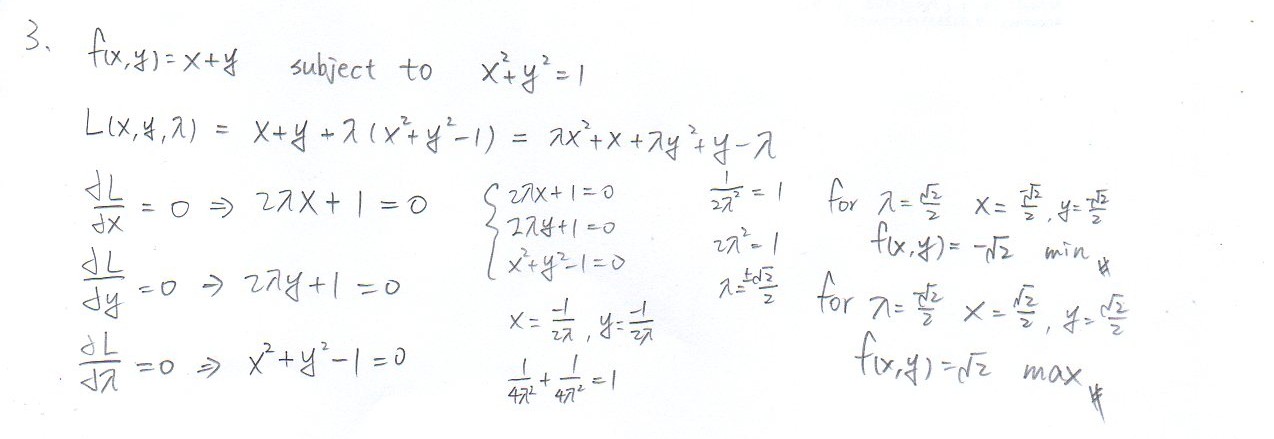 3. f(x,y)=x+y subject to x²+y²=1
L(x,y,λ) = x+y+λ(x²+y²-1) = λx²+x+λy²+y-λ
dL/dx = 0 ⇒ 2λx+1=0
dL/dy = 0 ⇒ 2λy+1=0
dL/dλ = 0 ⇒ x²+y²-1=0
{ 2λx+1=0
2λy+1=0
x²+y²-1=0
x = -1/2λ, y = -1/2λ
1/4λ² + 1/4λ² = 1
1/2λ² = 1
2λ² = 1
λ = ±√2/2
for λ = √2/2 x = -√2/2, y = -√2/2
f(x,y) = -√2 min #
for λ = -√2/2 x = √2/2, y = √2/2
f(x,y) = √2 max #